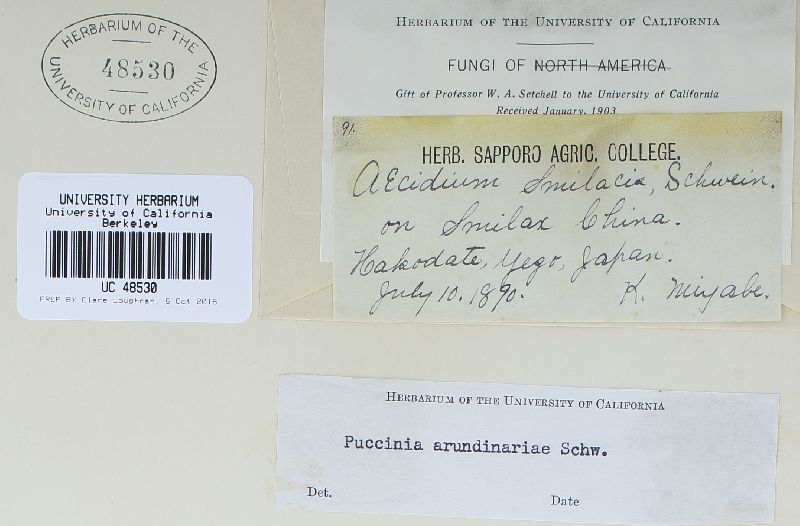 HERBARIUM OF THE
48530
UNIVERSITY OF CALIFORNIA
HERBARIUM OF THE UNIVERSITY OF CALIFORNIA
FUNGI OF NORTH AMERICA
Gift of Professor W. A. Setchell to the University of California
Received January, 1903
91.
HERB. SAPPORO AGRIC. COLLEGE.
Aecidium Smilacis, Schwein.
on Smilax China.
Hakodate, Yezo, Japan.
July 10. 1890. K. Miyabe.
UNIVERSITY HERBARIUM
University of California
Berkeley
UC 48530
PREP BY Clare Loughran, 6 Oct 2016
HERBARIUM OF THE UNIVERSITY OF CALIFORNIA
Puccinia arundinariae Schw.
Det.
Date